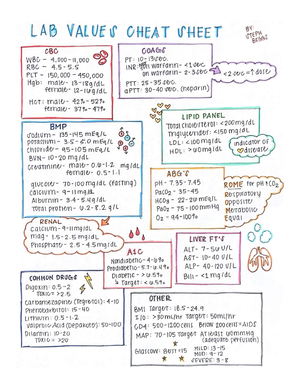 LAB VALUES CHEAT SHEET
BY:
STEPH
BEGGS
CBC
WBC - 4,000-11,000
RBC - 4.5-5.5
PLT - 150,000-450,000
Hgb: male - 13-18g/dL
female - 12-16g/dL
Hct: male - 42%-52%
female - 37%-47%
COAGS
PT: 10-13sec.
INR: on warfarin - <1sec
on warfarin - 2-3sec
<2sec = ↑dose
PTT: 25-35sec.
aPTT: 30-40sec. (heparin)
LIPID PANEL
Total cholesterol: <200mg/dL
Triglycerides: <150mg/dL
LDL: <100mg/dL
HDL: >60mg/dL
indicator of
BMP
Sodium - 135-145 mEq/L
Potassium - 3.5-5.0 mEq/L
chloride - 95-105 mEq/L
BUN - 10-20 mg/dL
Creatinine - male: 0.6-1.2 mg/dL
female: 0.5-1.1
glucose - 70-100mg/dL (fasting)
Calcium - 9-11mg/dL
Albumin - 3.4-5.4g/dL
Total protein - 6.2-8.2 g/L
ABG's
pH - 7.35-7.45
PaCO₂ - 35-45
HCO₃ - 22-26 mEq/L
PaO₂ - 75-100 mmHg
O₂ - 94-100%
ROME for pH + CO₂
Respiratory
Opposite
Metabolic
Equal
RENAL
Calcium - 9-11mg/dL
mag - 1.5-2.5 mg/dL
Phosphate - 2.5-4.5mg/dL
A1C
Nondiabetic - <6%
Prediabetic - 5.7-6.4%
Diabetic - >6.5%
↳ Target <6.5%
LIVER FT'S
ALT - 7-56 U/L
AST - 10-40 U/L
ALP - 40-120 U/L
Bili - <1 mg/dL
COMMON DRUGS
Digoxin: 0.5-2
TOXIC = >2.5
Carbamazepine (Tegretol): 4-10
Phenobarbital: 15-40
Lithium: 0.5-1.2
Valproic Acid (Depakote): 50-100
Dilantin: 10-20
TOXIC = >20
OTHER
BMI Target: 18.5-24.9
I/O: >30mL/hr Target: 50mL/hr
CD4: 500-1200cells Below 200cells = AIDS
MAP: 70-105 Target: At least 60mmHg
(adequate perfusion)
Glascow: Best = 15
MILD: 13-15
MOD: 9-12
SEVERE: 3-8